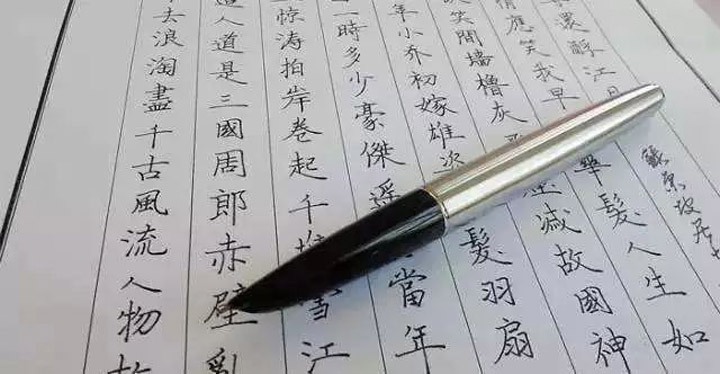 去浪淘盡千古風流人物
人道是三國周郎赤壁
惊涛拍岸卷起千雪江
一時多少豪傑遥當年
年小乔初嫁雄髮羽扇
笑間墻櫓灰滅故國神
情應笑我早華髮人生如
還酹江